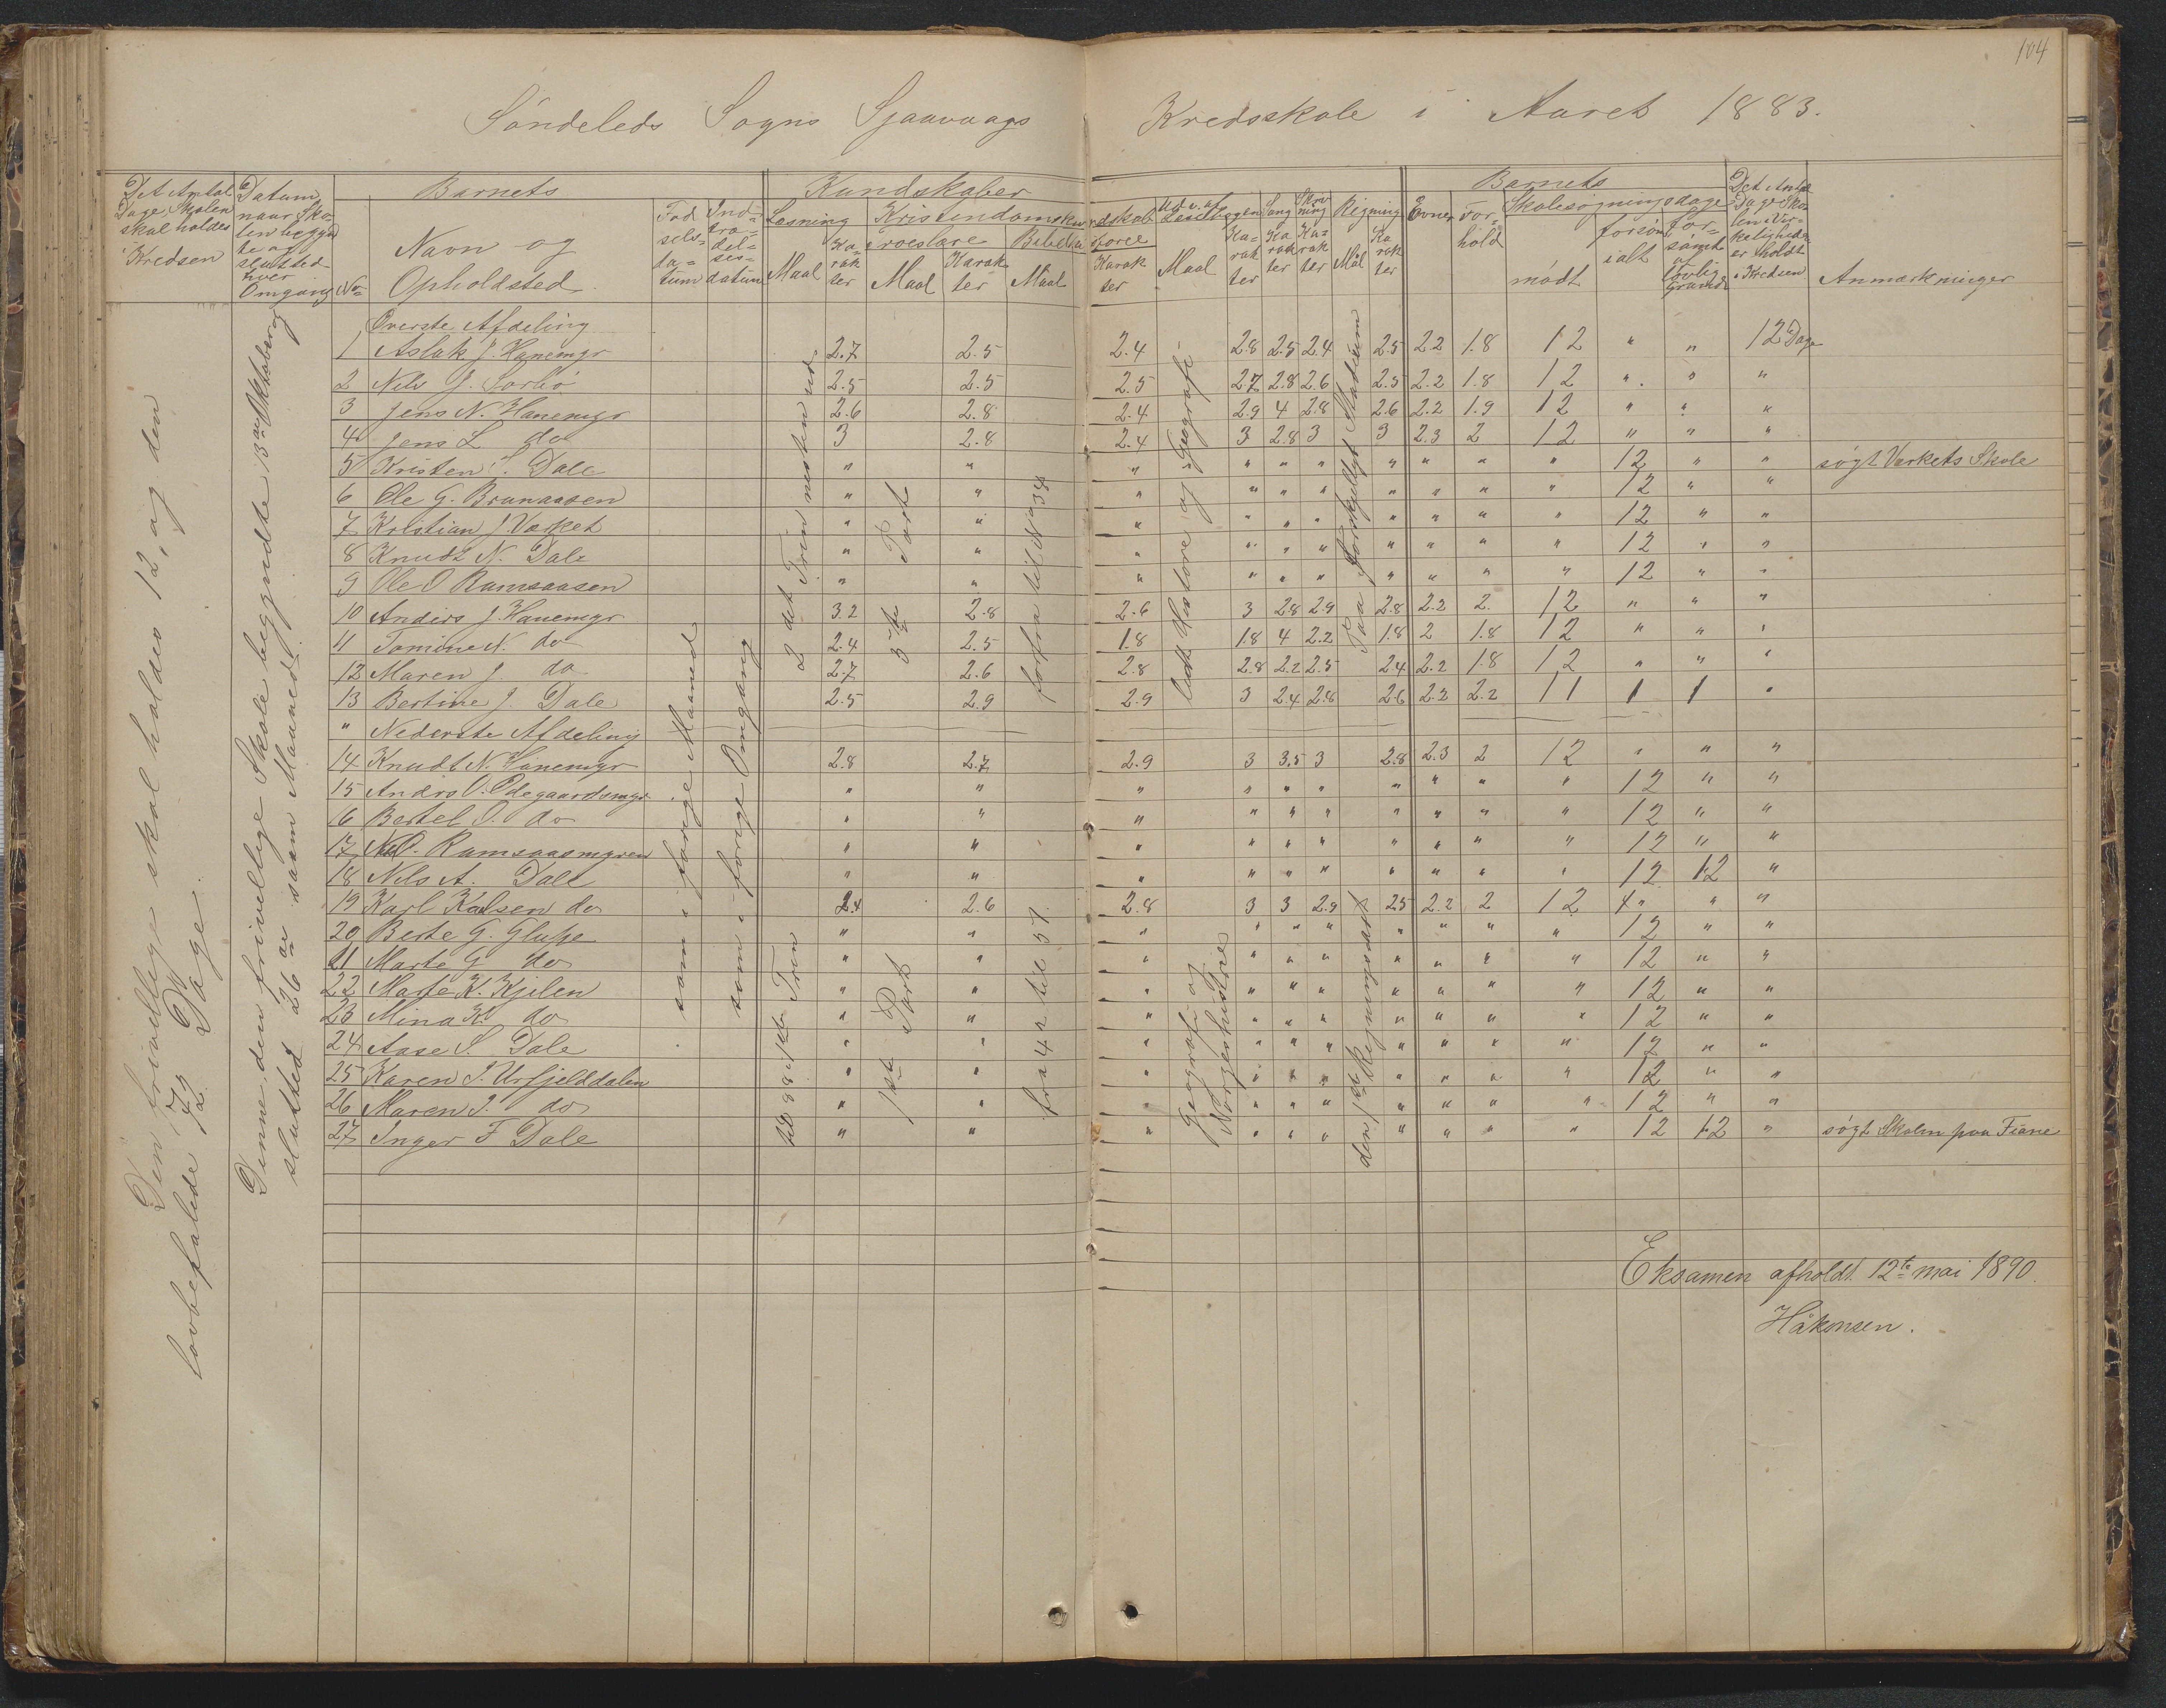 104
Söndeleds Sogns Sjaavaags Kredsskole i Aaret 1883.
Det Antal Dage, Skolen skal holdes i Kredsen
Datum, naar Skolen begyndte og slutted hver Omgang
No
Barnets
Navn og Opholdsted
Födselsdatum
Indtrædelsesdatum
Kundskaber
Læsning
Maal
Karakter
Kristendomskundskab
Troeslære
Maal
Karakter
Bibelhistorie
Maal
Karakter
Udv. af Læsebogen
Maal
Karakter
Sang
Karakter
Skrivning
Karakter
Regning
Mål
Karakter
Barnets
Evner
Forhold
Skolesøgningsdage
mødt
forsömt ialt
forsömt af lovlig Grund
Det Antal Dage Skolen i Virkeligheden er holdt i Kredsen
Anmærkninger
Den frivillige skal holdes 12, og den
lovbefalede 72 Dage.
Denne den frivillige Skole begyndte 13de Oktober og
slutted 26de samme Maaned.
som i forige Maaned
som i forige Omgang
2det Trin næsten ud.
3die Part
forfra til No 34
Udt. Historie og Geografi
Paa forskjelligt Stadium
til 88 1ste Trin
1ste Part
fra 42 til 57.
Geografi og Norgeshistrie
den 1ste Regningsart
Överste Afdeling
1 Aslak J. Hanemyr 2.7 2.5 2.4 2.8 2.5 2.4 2.5 2.2 1.8 12 " " 12 Dage
2 Nils J. Sorbö 2.5 2.5 2.5 2.7 2.8 2.6 2.5 2.2 1.8 12 " " "
3 Jens N. Hanemyr 2.6 2.8 2.4 2.9 4 2.8 2.6 2.2 1.9 12 " " "
4 Jens L do 3 2.8 2.4 3 2.8 3 3 2.3 2 12 " " "
5 Kristen S. Dale " " " " " " " " " " 12 " " søgt Værkets Skole
6 Ole G. Brunaasen " " " " " " " " " " 12 " "
7 Kristian J. Værket " " " " " " " " " " 12 " "
8 Knudt N. Dale " " " " " " " " " " 12 " "
9 Ole O Ramsaasen " " " " " " " " " " 12 " "
10 Anders J. Hanemyr 3.2 2.8 2.6 3 2.8 2.9 2.8 2.2 2. 12 " " "
11 Tomine N. do 2.4 2.5 1.8 1.8 4 2.2 1.8 2 1.8 12 " " "
12 Maren J. do 2.7 2.6 2.8 2.8 2.2 2.5 2.4 2.2 1.8 12 " " "
13 Bertine J. Dale 2.5 2.9 2.9 3 2.4 2.8 2.6 2.2 2.2 11 1 1 "
" Nederste Afdeling
14 Knudt N. Hanemyr 2.8 2.7 2.9 3 3.5 3 2.8 2.3 2 12 " " "
15 Andrs O. Ödegaardsmyr " " " " " " " " " " 12 " "
16 Bertel O. do " " " " " " " " " " 12 " "
17 O. Ramsaasmyren " " " " " " " " " " 12 " "
18 Nils A. Dale " " " " " " " " " " 12 12 "
19 Karl Kalsen do 2.4 2.6 2.8 3 3 2.9 2.5 2.2 2 12 " " "
20 Berte G. Glupe " " " " " " " " " " 12 " "
21 Marte G do " " " " " " " " " " 12 " "
22 Marte K. Kjilen " " " " " " " " " " 12 " "
23 Mina K. do " " " " " " " " " " 12 " "
24 Aase S. Dale " " " " " " " " " " 12 " "
25 Karen T. Urfjelddalen " " " " " " " " " " 12 " "
26 Maren T. do " " " " " " " " " " 12 " "
27 Inger F Dale " " " " " " " " " " 12 12 " søgt Skolen paa Fiane
Eksamen afholdt 12te mai 1890.
Håkonsen.